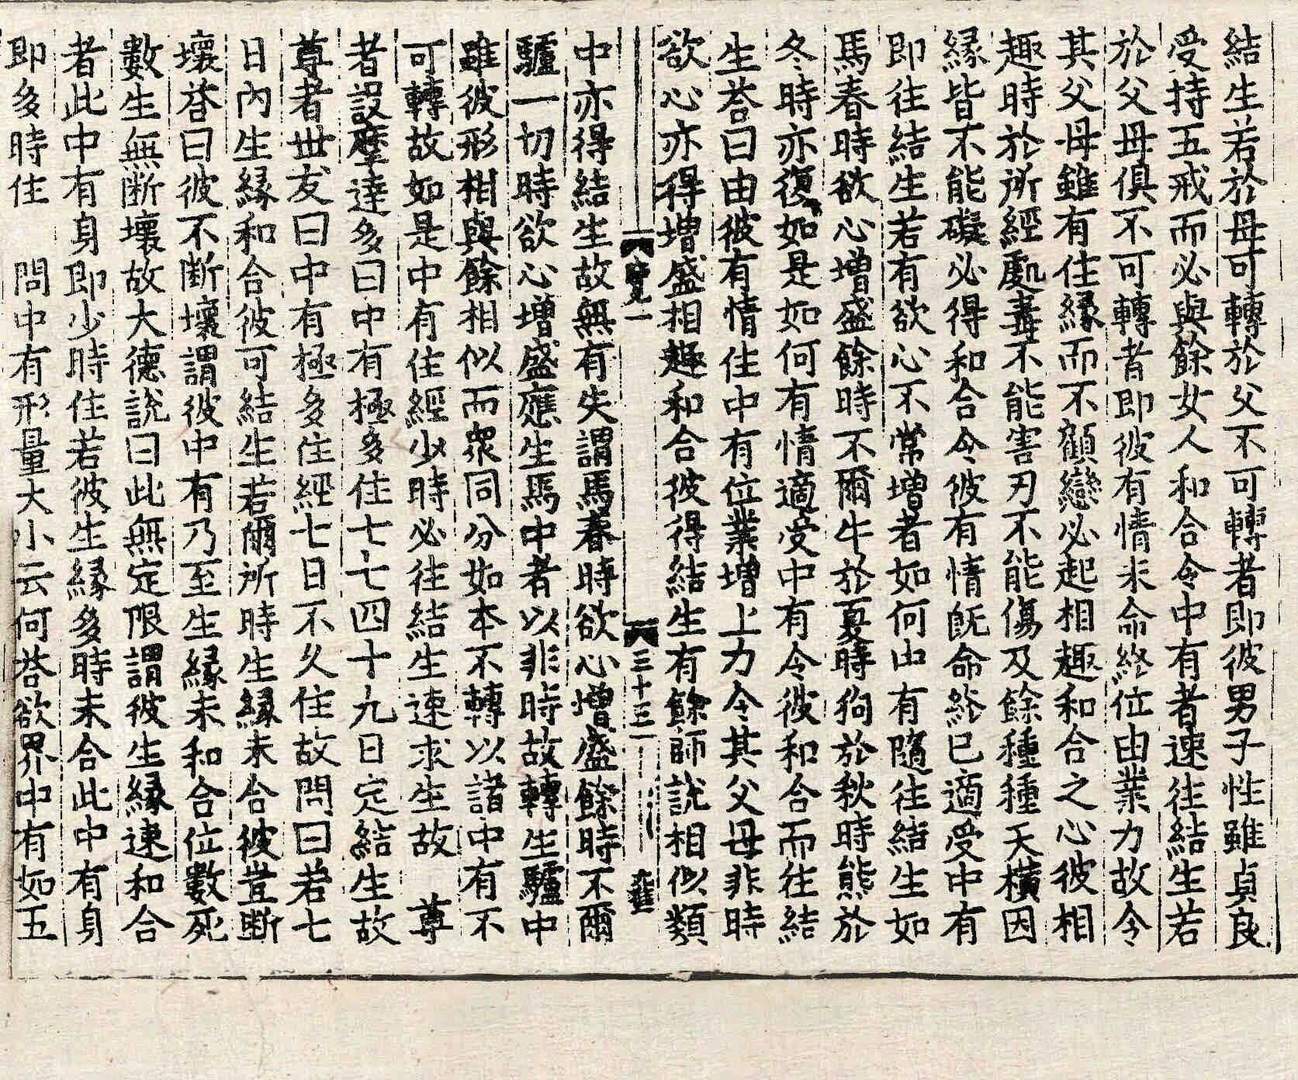 結生若於母可轉於父不可轉者即彼男子性雖貞良
受持五戒而必與餘女人和合令中有者速往結生若
於父母俱不可轉者即彼有情未命終位由業力故令
其父母雖有住緣而不顧戀必起相趣和合之心彼相
趣時於所經處毒不能害刃不能傷及餘種種夭橫因
緣皆不能礙必得和合令彼有情旣命終已適受中有
即往結生若有欲心不常增者如何由有隨往結生如
馬春時欲心增盛餘時不爾牛於夏時狗於秋時熊於
冬時亦復如是如何有情適受中有令彼和合而往結
生荅曰由彼有情住中有位業增上力令其父母非時
欲心亦得增盛相趣和合彼得結生有餘師說相似類
覽一 三十三
中亦得結生故無有失謂馬春時欲心增盛餘時不爾
驢一切時欲心增盛應生馬中者以非時故轉生驢中
雖彼形相與餘相似而眾同分如本不轉以諸中有不
可轉故如是中有住經少時必往結生速求生故 尊
者設摩達多曰中有極多住七七四十九日定結生故
尊者世友曰中有極多住經七日不久住故問曰若七
日內生緣和合彼可結生若爾所時生緣未合彼豈斷
壞荅曰彼不斷壞謂彼中有乃至生緣未和合位數死
數生無斷壞故大德說曰此無定限謂彼生緣速和合
者此中有身即少時住若彼生緣多時未合此中有身
即多時住 問中有形量大小云何荅欲界中有如五